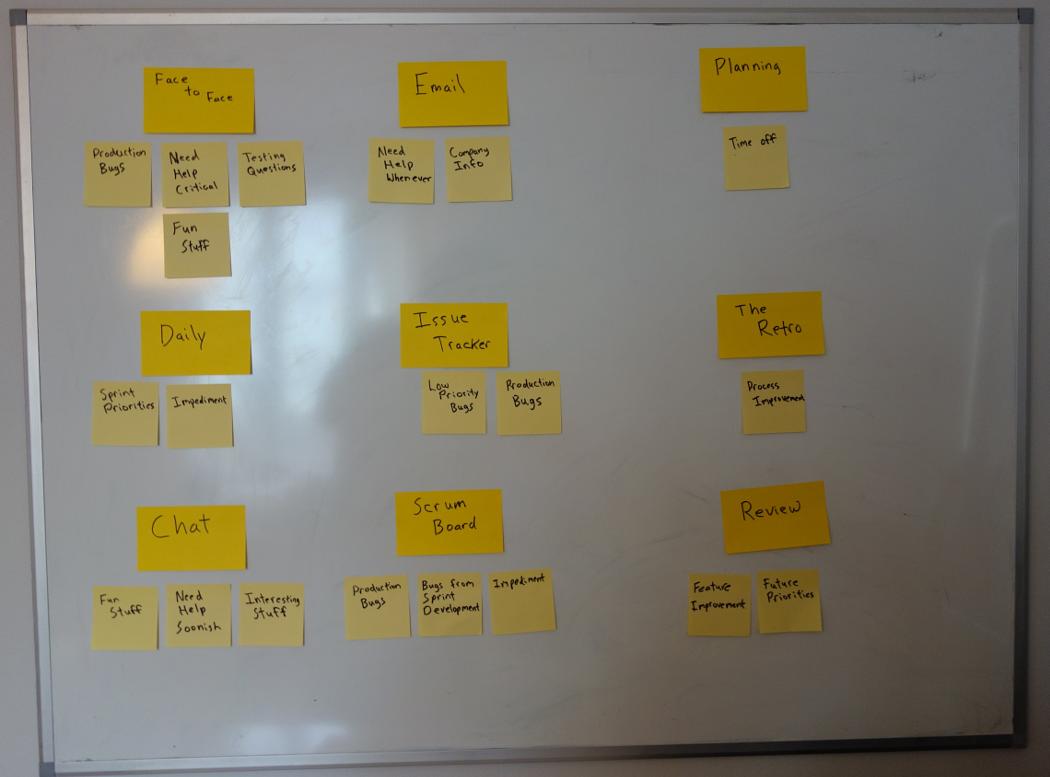 Face
to Face
Production
Bugs
Need
Help
Critical
Testing
Questions
Fun
Stuff
Email
Need
Help
Whenever
Company
Info
Planning
Time off
Daily
Sprint
Priorities
Impediment
Issue
Tracker
Low
Priority
Bugs
Production
Bugs
The
Retro
Process
Improvement
Chat
Fun
Stuff
Need
Help
Soonish
Interesting
Stuff
Scrum
Board
Production
Bugs
Bugs from
Sprint
Development
Impediment
Review
Feature
Improvement
Future
Priorities